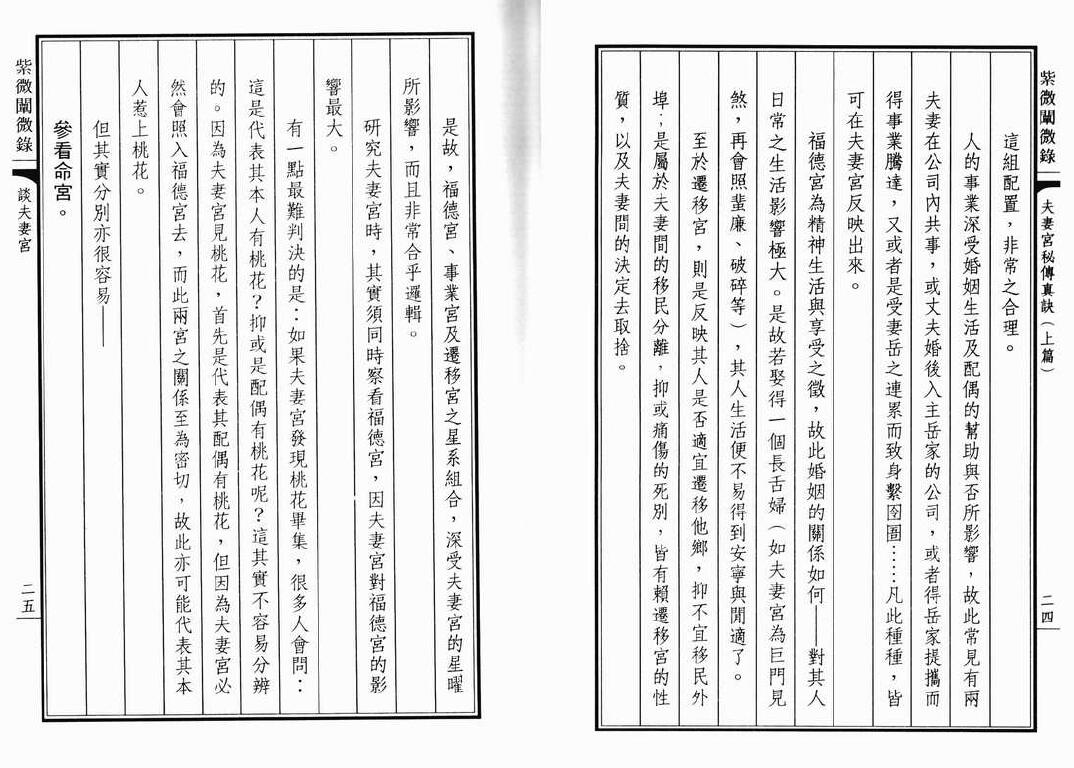 紫微闡微錄
夫妻宮秘傳真訣(上篇)
二四
這組配置，非常之合理。
人的事業深受婚姻生活及配偶的幫助與否所影響，故此常見有兩
夫妻在公司內共事，或丈夫婚後入主岳家的公司，或者得岳家提攜而
得事業騰達，又或者是受妻岳之連累而致身繫囹圄……凡此種種，皆
可在夫妻宮反映出來。
福德宮為精神生活與享受之徵，故此婚姻的關係如何——對其人
日常之生活影響極大。是故若娶得一個長舌婦（如夫妻宮為巨門見
煞，再會照蜚廉、破碎等），其人生活便不易得到安寧與閒適了。
至於遷移宮，則是反映其人是否適宜遷移他鄉，抑不宜移民外
埠；是屬於夫妻間的移民分離，抑或痛傷的死別，皆有賴遷移宮的性
質，以及夫妻間的決定去取捨。
是故，福德宮、事業宮及遷移宮之星系組合，深受夫妻宮的星曜
所影響，而且非常合乎邏輯。
研究夫妻宮時，其實須同時察看福德宮，因夫妻宮對福德宮的影
響最大。
有一點最難判決的是：如果夫妻宮發現桃花畢集，很多人會問：
這是代表其本人有桃花？抑或是配偶有桃花呢？這其實不容易分辨
的。因為夫妻宮見桃花，首先是代表其配偶有桃花，但因為夫妻宮必
然會照入福德宮去，而此兩宮之關係至為密切，故此亦可能代表其本
人惹上桃花。
但其實分別亦很容易——
參看命宮。
紫微闡微錄
談夫妻宮
二五